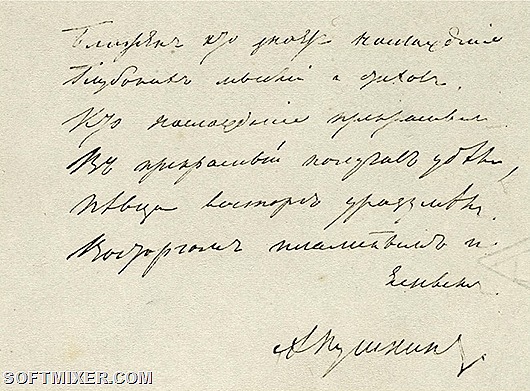 Блаженъ кто знаетъ наслаждніе
Глубокихъ мыслей и стиховъ.
Кто наслажденіе прекраснымъ
Въ прекрасный получилъ удѣлъ,
Пѣвца восторгъ уразумѣлъ
Восторгомъ пламеннымъ и
яснымъ.
А Пушкинъ
SOFTMIXER.COM